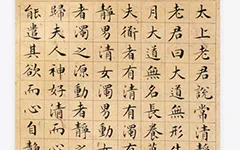 太上老君說常清靜
老君曰大道無形生
月大道無名長養萬
夫道者有清有濁有
靜男清女濁男動女
者濁之源動者靜之
歸夫人神好清而心
能遣其欲而心自靜